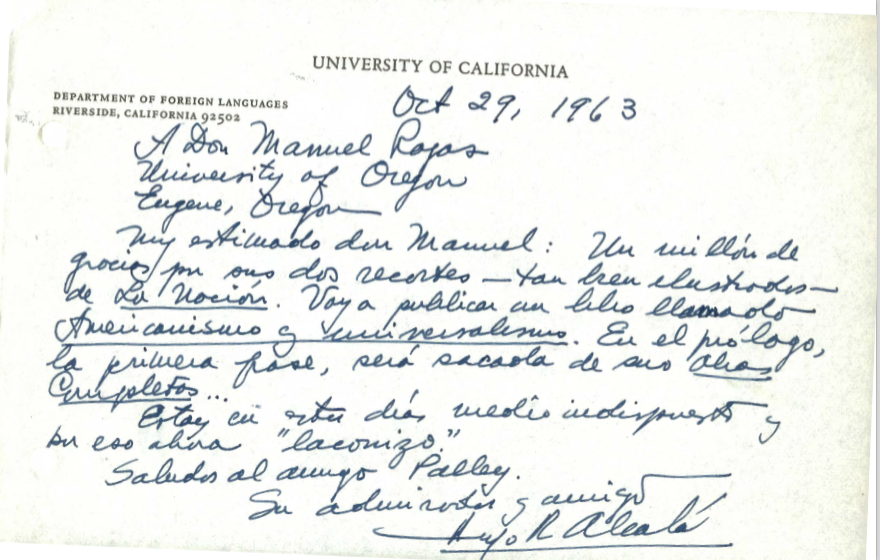 UNIVERSITY OF CALIFORNIA
DEPARTMENT OF FOREIGN LANGUAGES
RIVERSIDE, CALIFORNIA 92502
Oct 29, 1963
A Don Manuel Rojas
University of Oregon
Eugene, Oregon
Muy estimado don Manuel: Un millón de
gracias por sus dos recortes — tan bien ilustrados —
de La Nación. Voy a publicar un libro llamado
Americanismo y universalismo. En el prólogo,
la primera frase, será sacada de sus Obras
Completas...
Estoy en estos días medio indispuesto y
por eso ahora "laconizo."
Saludos al amigo Palley.
Su admirador y amigo
Hugo R Alcalá